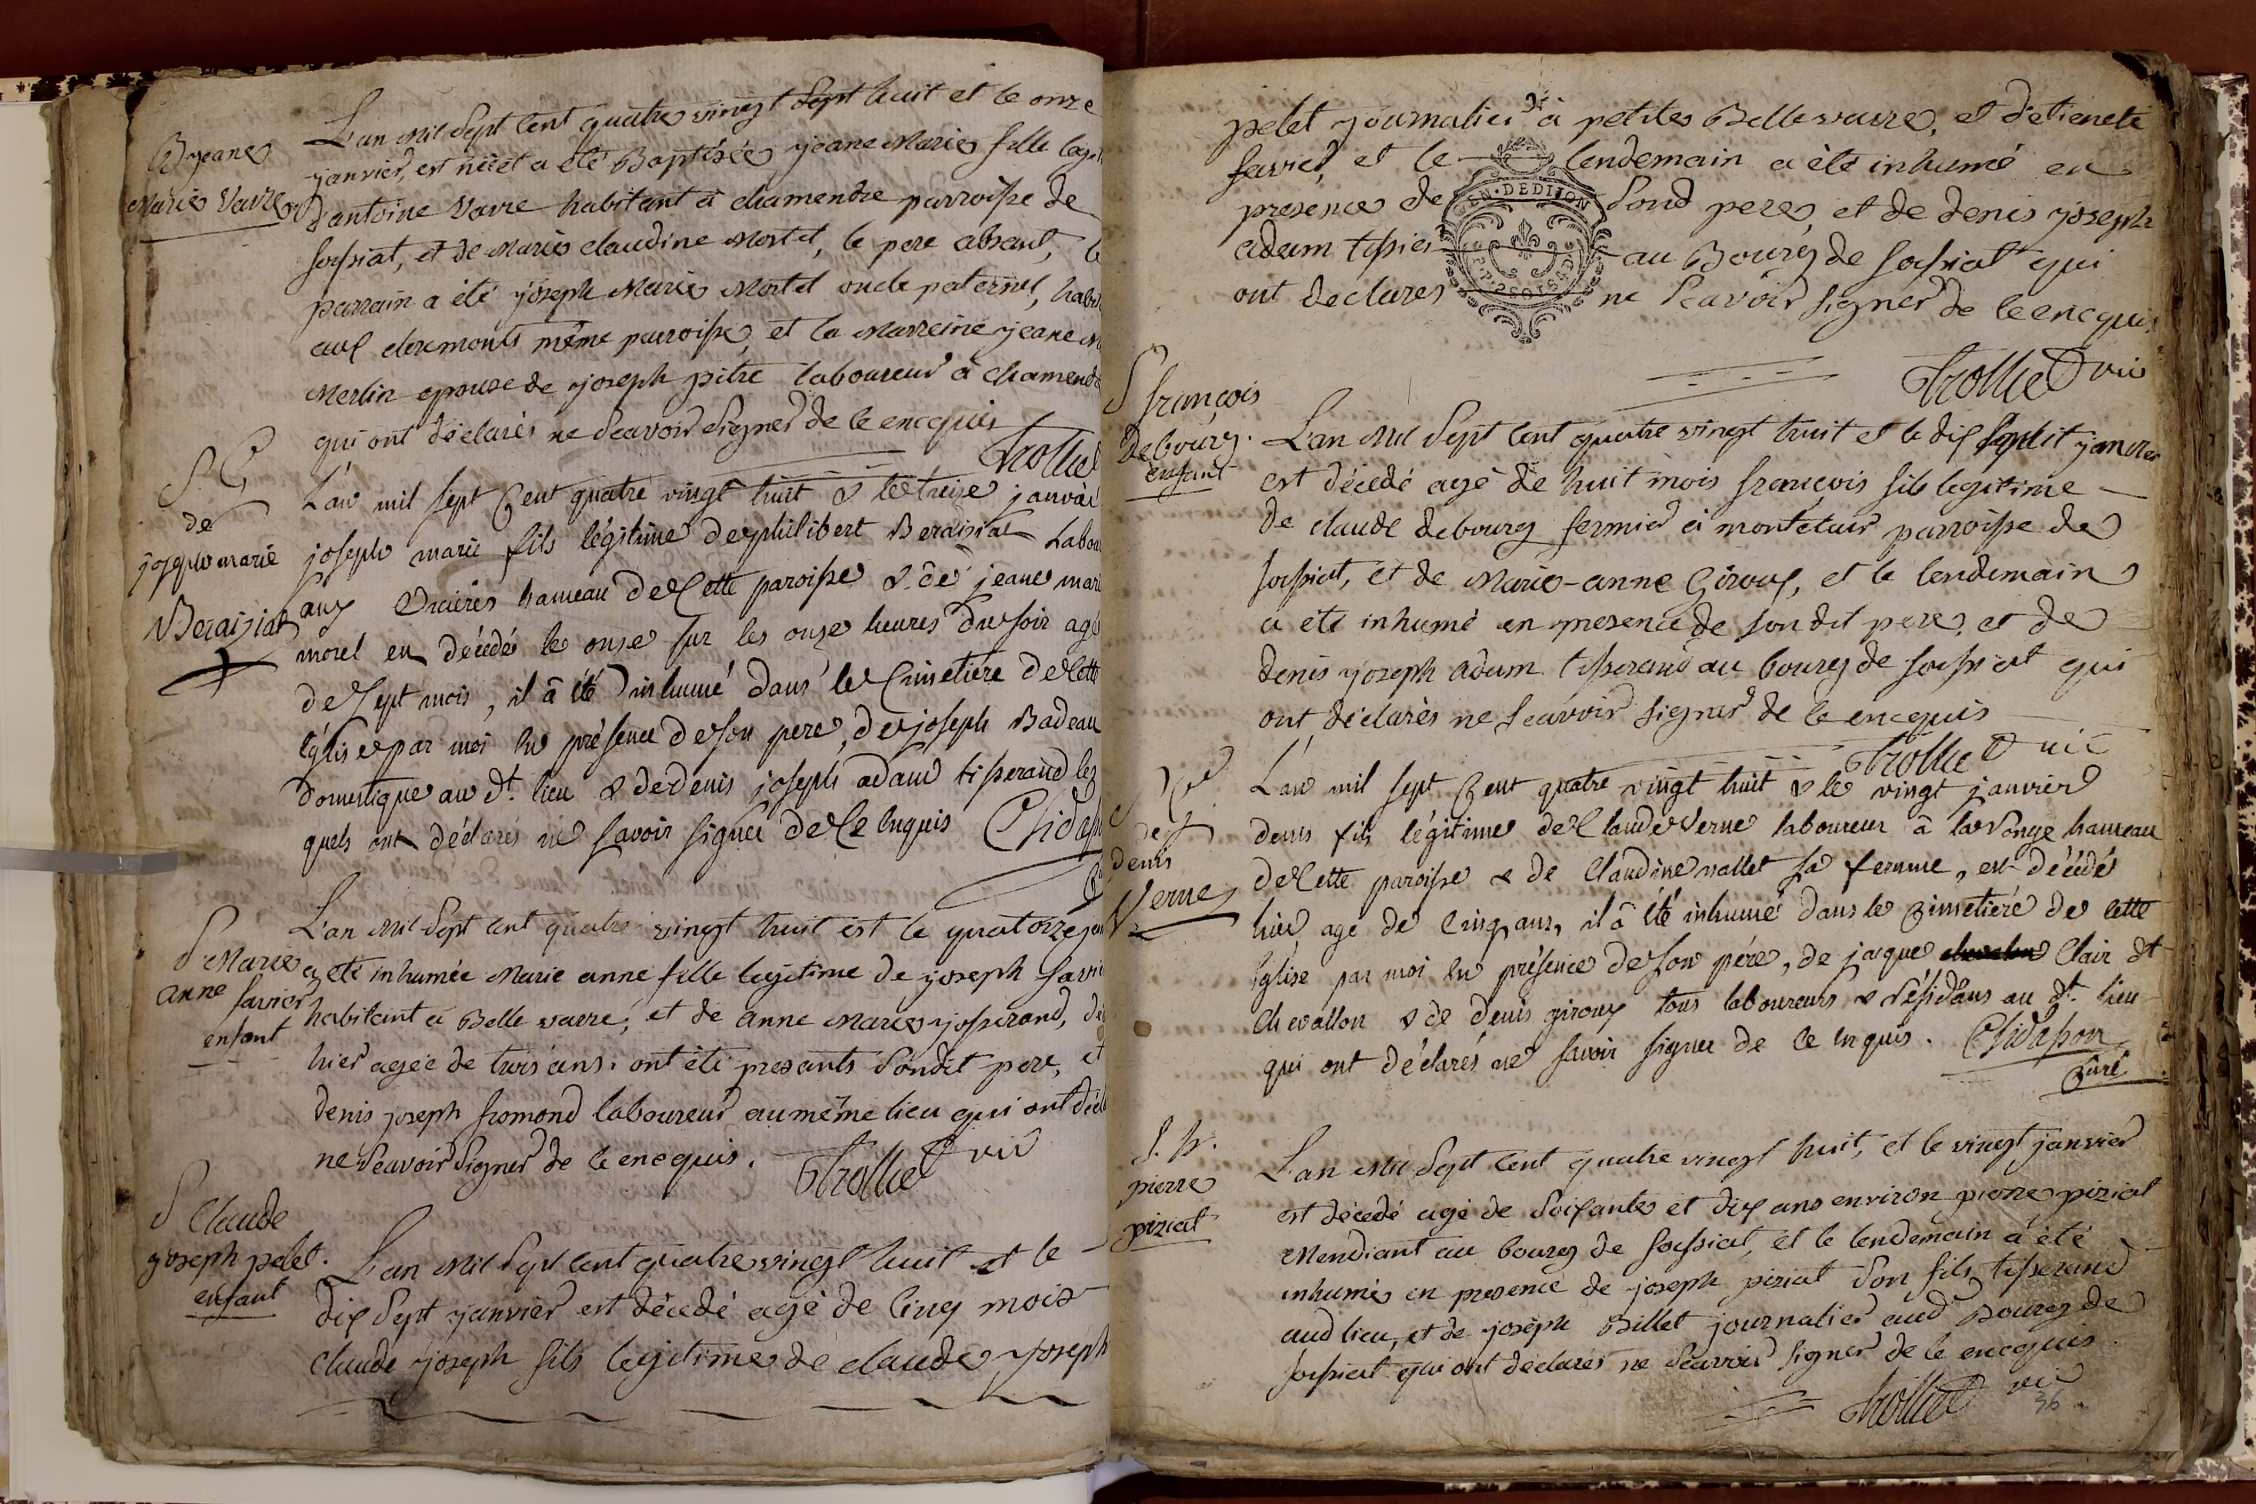 B. jeane
Marie Varre
L'an mil Sept Cent quatre vingt Sept huit et le onze
janvier, est née et a été Baptisée jeane Marie fille legit
d'antoine Varre habitant à chamendre parroisse de
Sousiat, et de Marie claudine Mortel, le pere absent, le
parrain a été joseph Marie Mortel oncle paternel, habit
aux clermonts même parroisse, et la Marreine jeane M
Merlin epouse de joseph pitre laboureur à chamend
qui ont déclarés ne Scavoir Signer de ce encquis
Trolliet
S. E
de
joseph marie
Beraiziat
L'an mil sept Cent quatre vingt huit & le treize janvier
joseph marie fils légitime de philibert Beraiziat Labou
aux hameau de Cette paroisse & de jeane mari
morel en décédé le onze sur les onze heures du soir agé
de Sept mois, il à été inhumé dans le Cimetiere de Cette
église par moi en présence de son pere, de joseph Badeau
domestique au dt. lieu & de denis joseph adam tisserand les
quels ont déclarés ne savoir signer de Ce enquis
S Marie
anne favier
enfant
L'an mil Sept Cent quatre vingt huit est le quatorze jan
a eté inhumée Marie anne fille legitime de joseph favi
habitant à Belle varre, et de anne Marie josserand, dé
hier agée de trois ans. ont été presents Sondit pere, et
denis joseph fromond laboureur au même lieu qui ont décl
ne Scavoir Signer de ce encquis. Trolliet vic
S Claude
joseph pelet.
enfant
L'an Mil Sept Cent quatre vingt huit et le
dix Sept janvier est décédé agé de Cinq mois
claude joseph fils legitime de claude joseph
pelet journalier à petites Bellevarre, et d'etienete
favier, et le lendemain a été inhumé en
presence de Sond pere, et de denis joseph
adam tissier au Bourg de Sousiat qui
ont declares ne Scavoir Signer de ce encquis
GEN. DE DIJON
Trolliet vic
S françois
debourg.
enfant
L'an Mil Sept Cent quatre vingt huit et le dix Sept janvier
est décédé agé de huit mois françois fils legitime
de claude debourg fermier à montetur parroisse de
Sousiat, et de Marie-anne Giroux, et le lendemain
a été inhumé en presence de Son dit pere, et de
denis joseph adam tisserand au bourg de Sousiat qui
ont déclarés ne Scavoir Signer de ce encquis
Trolliet vic
de
denis
Verne
L'an mil sept Cent quatre vingt huit & le vingt janvier
denis fils légitime de Claude Verne laboureur à la hameau
de Cette paroisse & de Claudine vallet sa femme, est décédé
hier agé de Cinq ans, il à été inhumé dans le Cimetiére de cette
église par moi en présence de son pére, de jaque Clair dt
Chevallon & de denis giroux tous laboureurs & résidans au dt. lieu
qui ont déclarés ne savoir signer de Ce enquis.
Curé
S. h.
pierre
piriat
L'an Mil Sept Cent quatre vingt huit, et le vingt janvier
est décédé agé de Soixante et dix ans environ pierre piriat
Mendiant au bourg de Sousiat, et le lendemain a été
inhumé en presence de joseph piriat Son fils tisserand
aud lieu, et de joseph Billet journalier aud Bourg de
Sousiat qui ont déclarés ne Scavoir Signer de ce encquis.
Trolliet vic
36